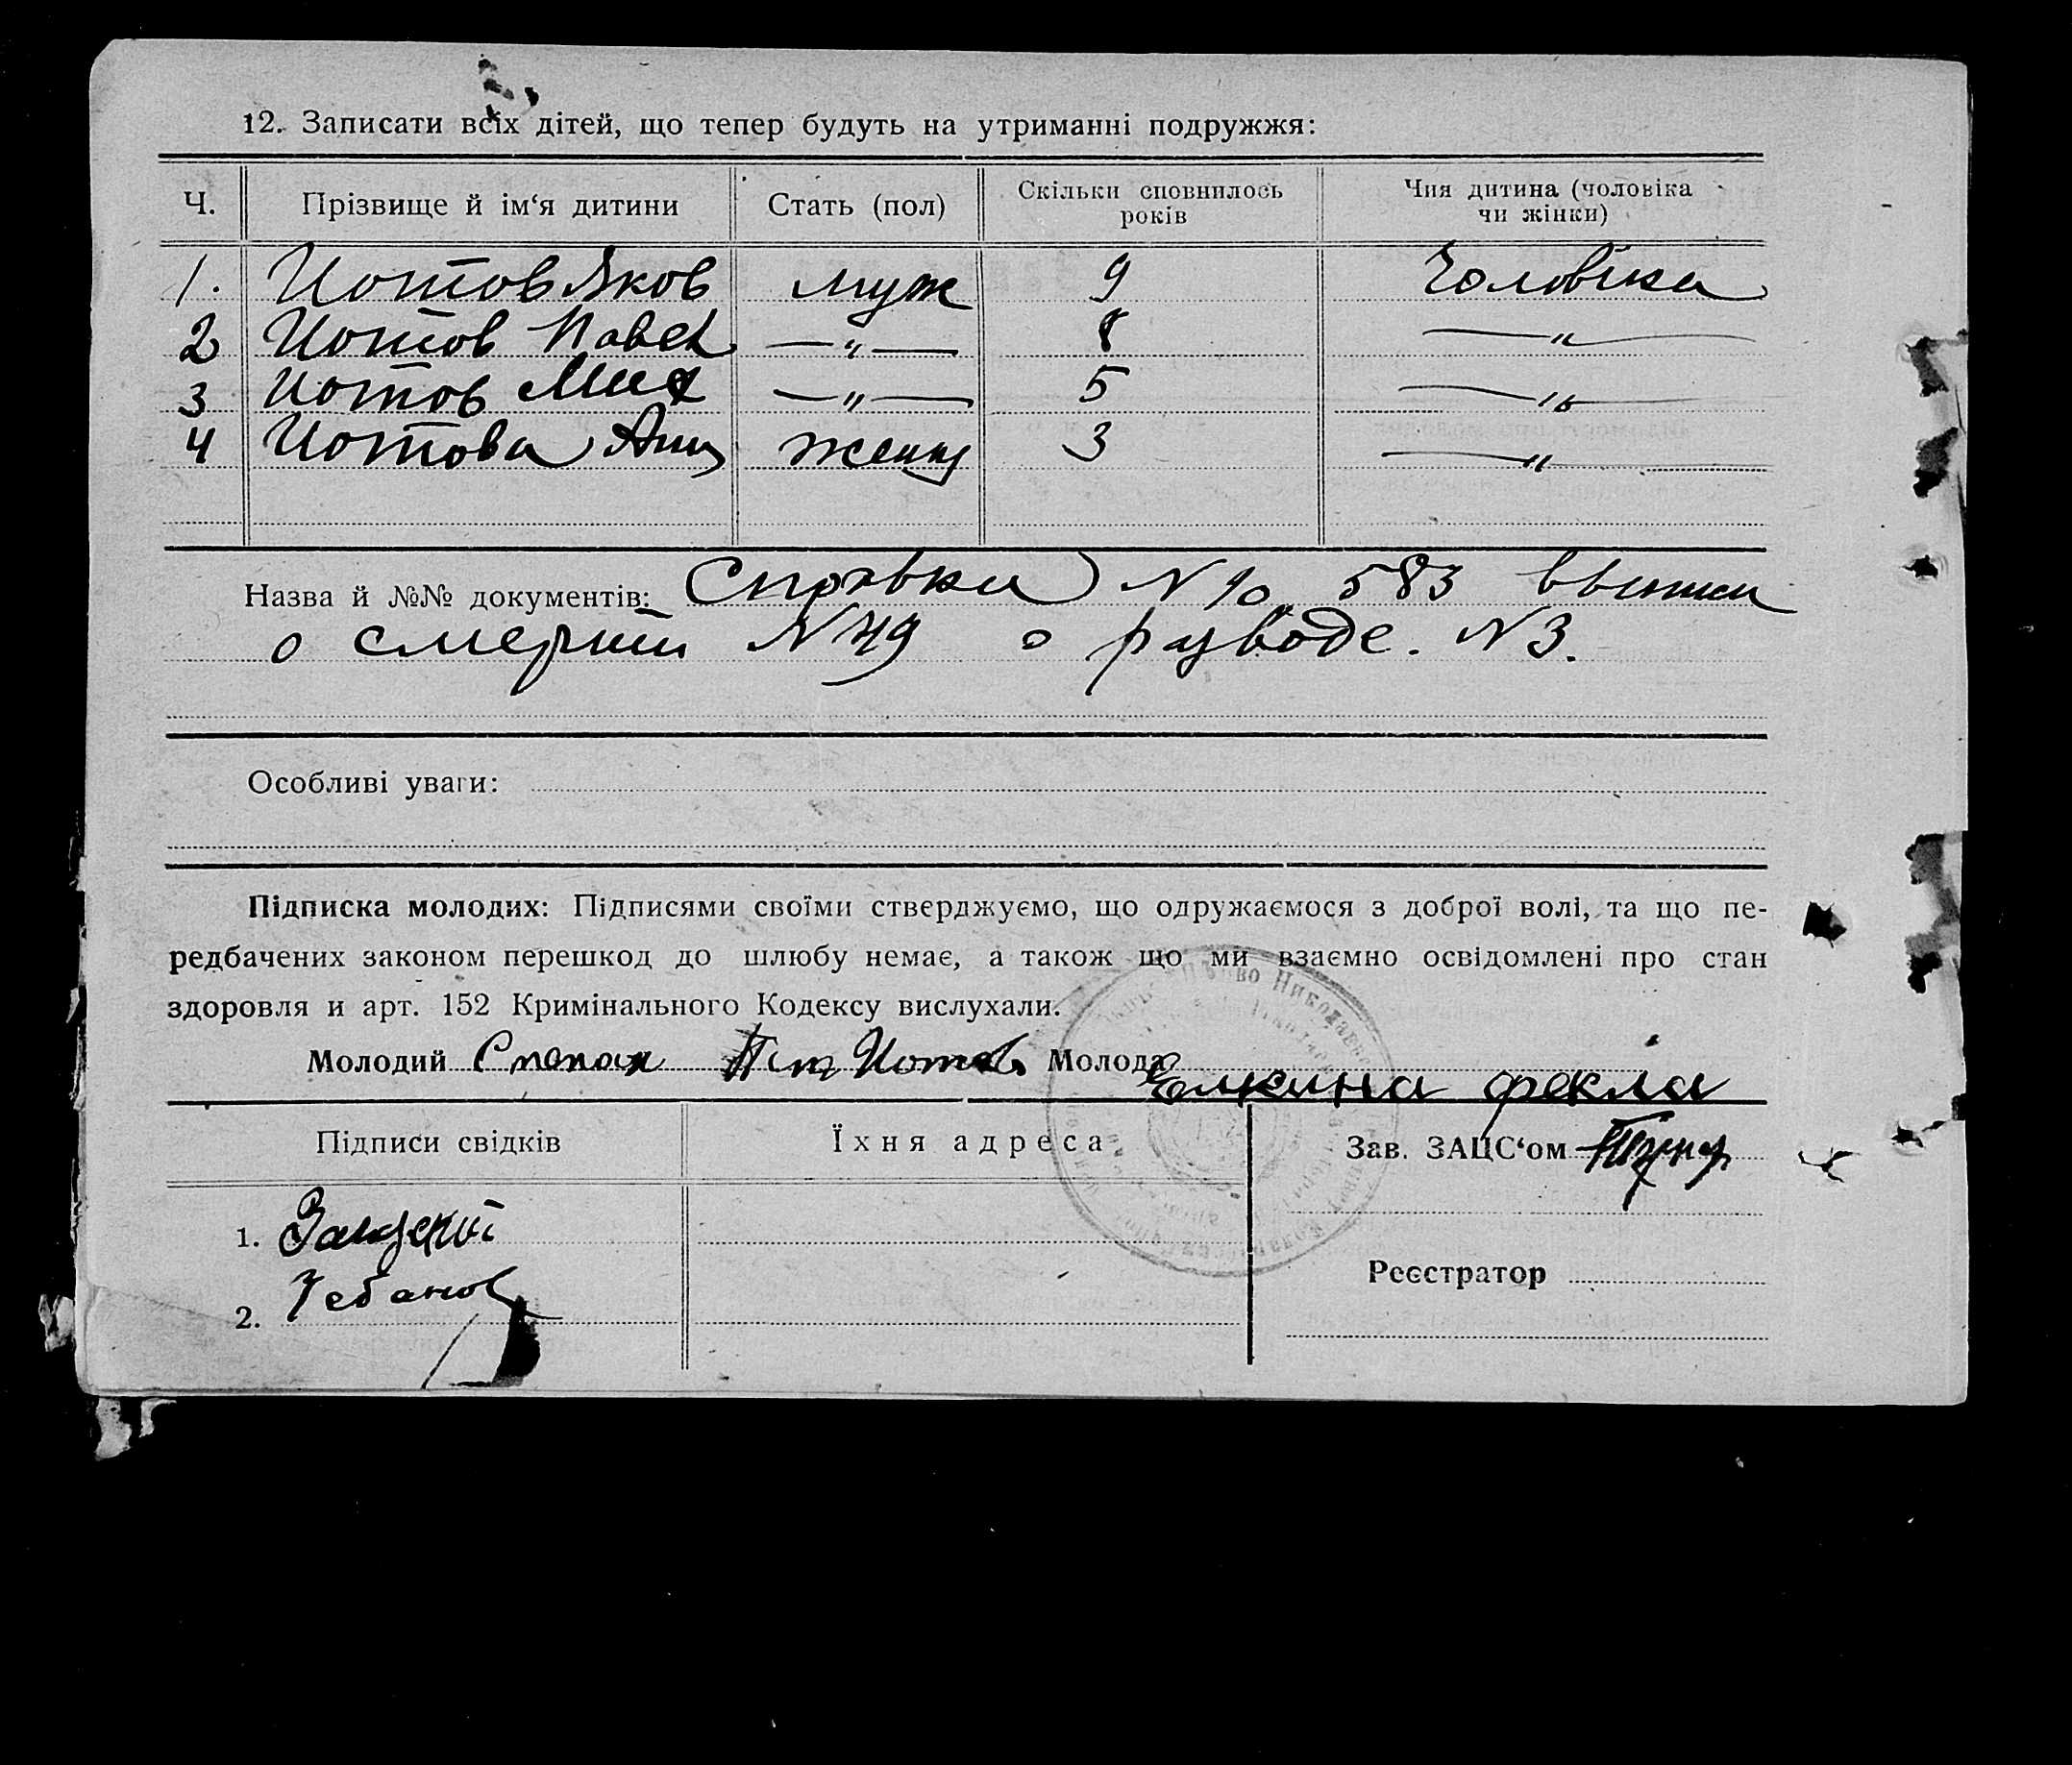 12. Записати всіх дітей, що тепер будуть на утриманні подружжя:
Ч. Прізвище й ім‘я дитини Стать (пол) Скільки сповнилось років Чия дитина (чоловіка чи жінки)
1. Иотов Яков муж 9 Чоловіка
2 Иотов Павел —"— 8 —"—
3 Иотов Мих —"— 5 —"—
4 Иотова Анна 3 —"—
Назва й №№ документів: Справка N 10 583
о смерти N 49 о разводе. N 3.
Особливі уваги:
Підписка молодих: Підписями своїми стверджуємо, що одружаємося з доброї волі, та що пе-
редбачених законом перешкод до шлюбу немає, а також що ми взаємно освідомлені про стан
здоровля и арт. 152 Кримінального Кодексу вислухали.
Молодий Степан Иотов Молода Елкина фекла
Підписи свідків Їхня адреса Зав. ЗАЦС‘ом
1.
Реєстратор
2. Чебанов